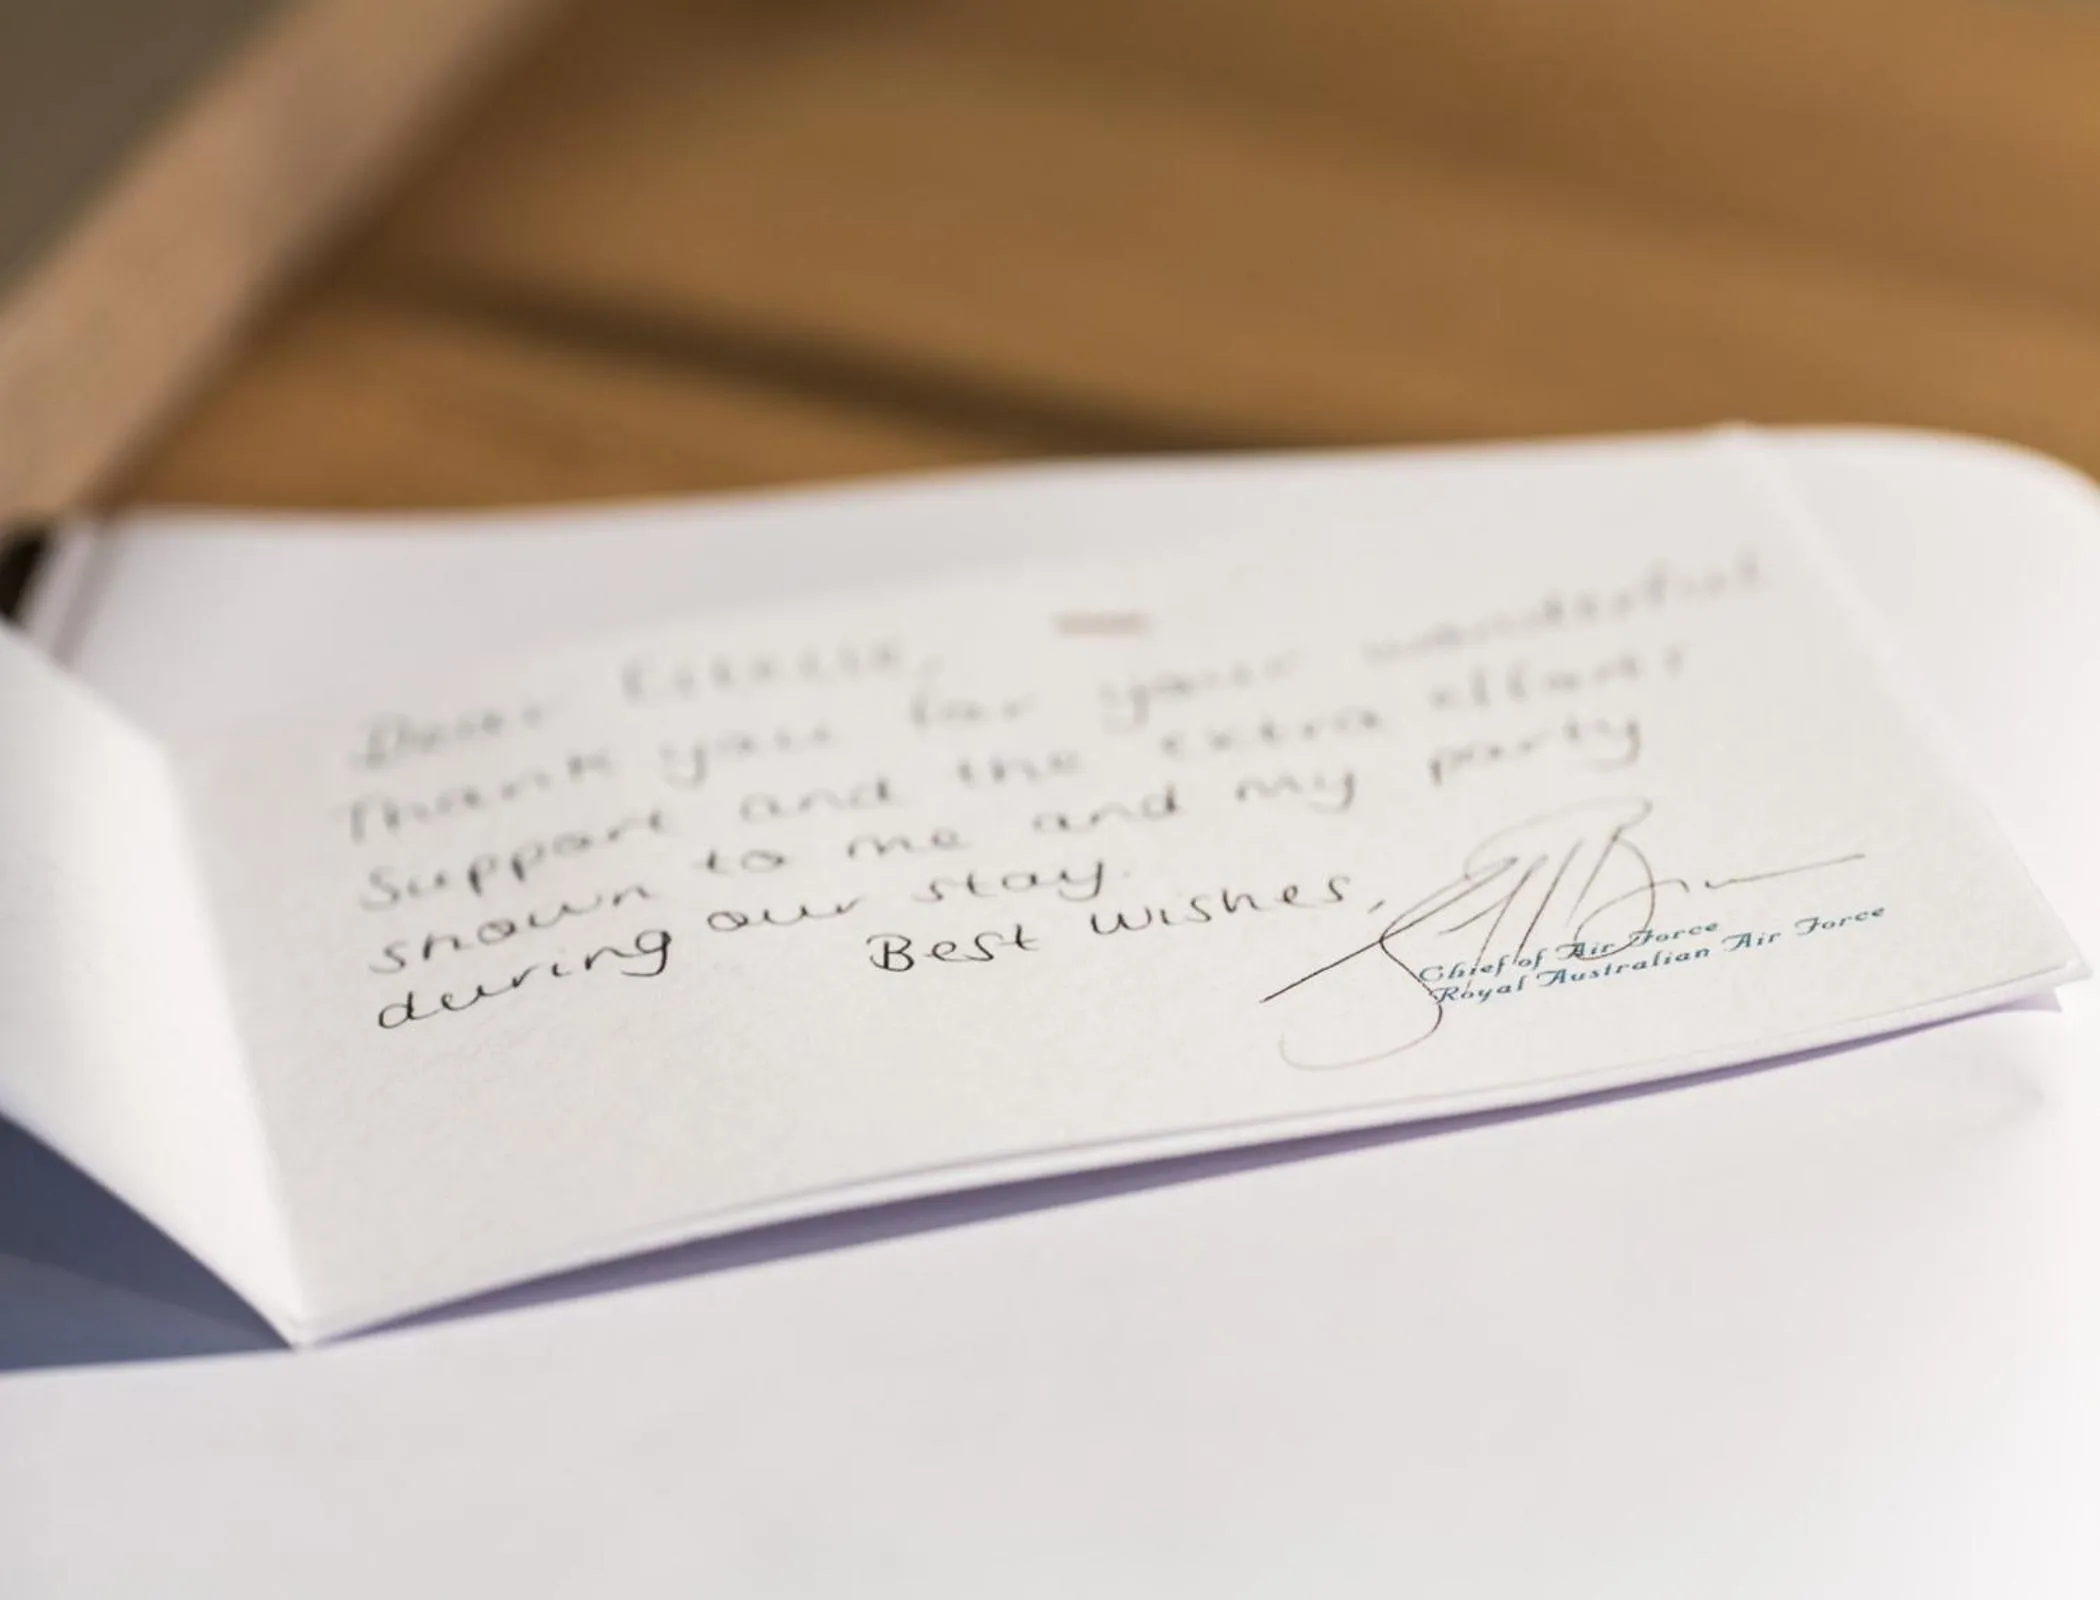 Dear
Thank you for your wonderful
Support and the extra effort
shown to me and my party
during our stay.
Best wishes,
Chief of Air Force
Royal Australian Air Force